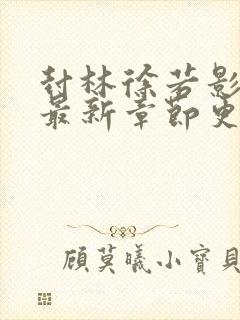 封林徐若影
最新章節史
顧莫曦小寶貝